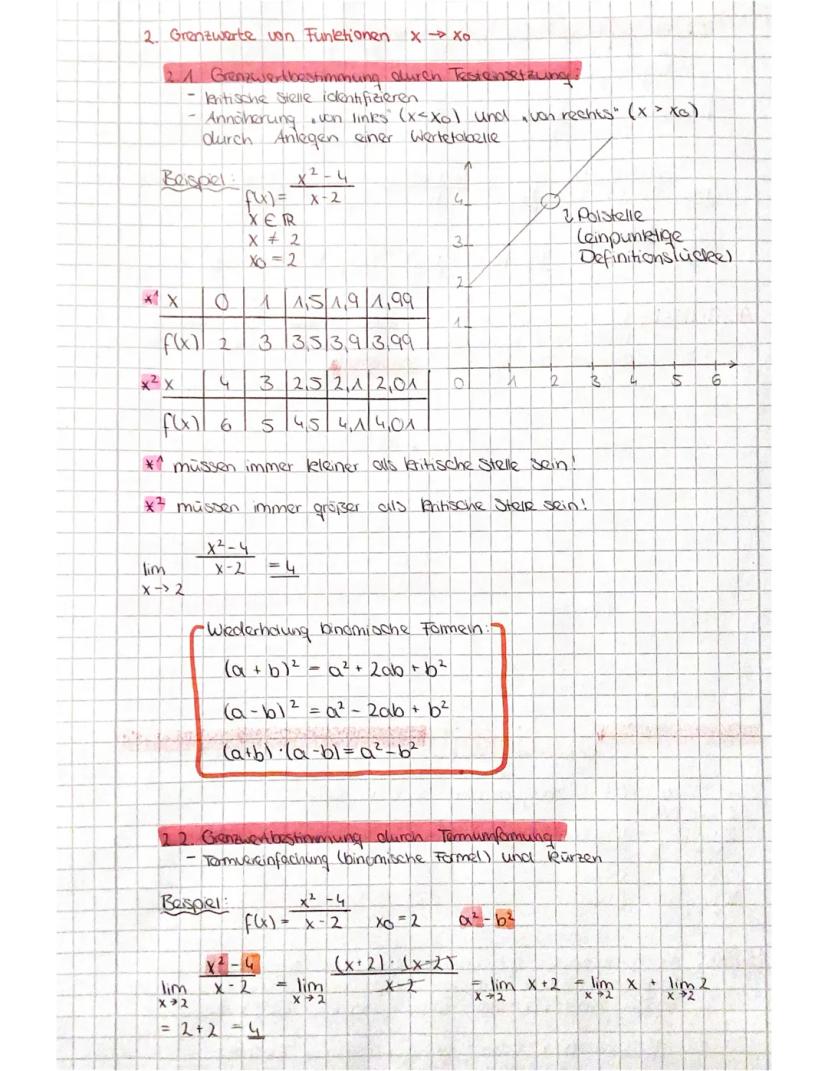 2. Grenzwerte von Funktionen x → x₀
2.1 Grenzwertbestimmung durch Testeinsetzung:
- kritische Stelle identifizieren
- Annäherung „von links" (x < x₀) und „von rechts" (x > x₀)
durch Anlegen einer Wertetabelle
Beispiel: f(x) = (x² - 4)/(x - 2)
x ∈ ℝ
x ≠ 2
x₀ = 2
4
3
2
1
0 1 2 3 4 5 6
⤷ Polstelle
(einpunktige
Definitionslücke)
x¹ x | 0 | 1 | 1,5 | 1,9 | 1,99
f(x) | 2 | 3 | 3,5 | 3,9 | 3,99
x² x | 4 | 3 | 2,5 | 2,1 | 2,01
f(x) | 6 | 5 | 4,5 | 4,1 | 4,01
x¹ müssen immer kleiner als kritische Stelle sein!
x² müssen immer größer als kritische Stelle sein!
lim x→2 (x² - 4)/(x - 2) = 4
Wiederholung binomische Formeln:
(a + b)² = a² + 2ab + b²
(a - b)² = a² - 2ab + b²
(a+b) · (a-b) = a² - b²
2.2. Grenzwertbestimmung durch Termumformung:
- Termvereinfachung (binomische Formel) und Kürzen
Beispiel: f(x) = (x² - 4)/(x - 2) x₀ = 2 a² - b²
lim x→2 (x² - 4)/(x - 2) = lim x→2 ((x+2) · (x-2))/(x-2) = lim x→2 x+2 = lim x→2 x + lim x→2 2
= 2+2 = 4